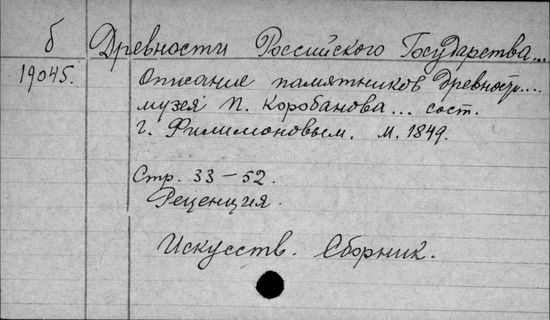 б Древности Российского Государства...
19045. Описание памятников древност....
музея П. Коробанова... сост.
г. Филимоновым. М. 1849.
Стр. 33-52.
Рецензия.
Искусств. Сборник.